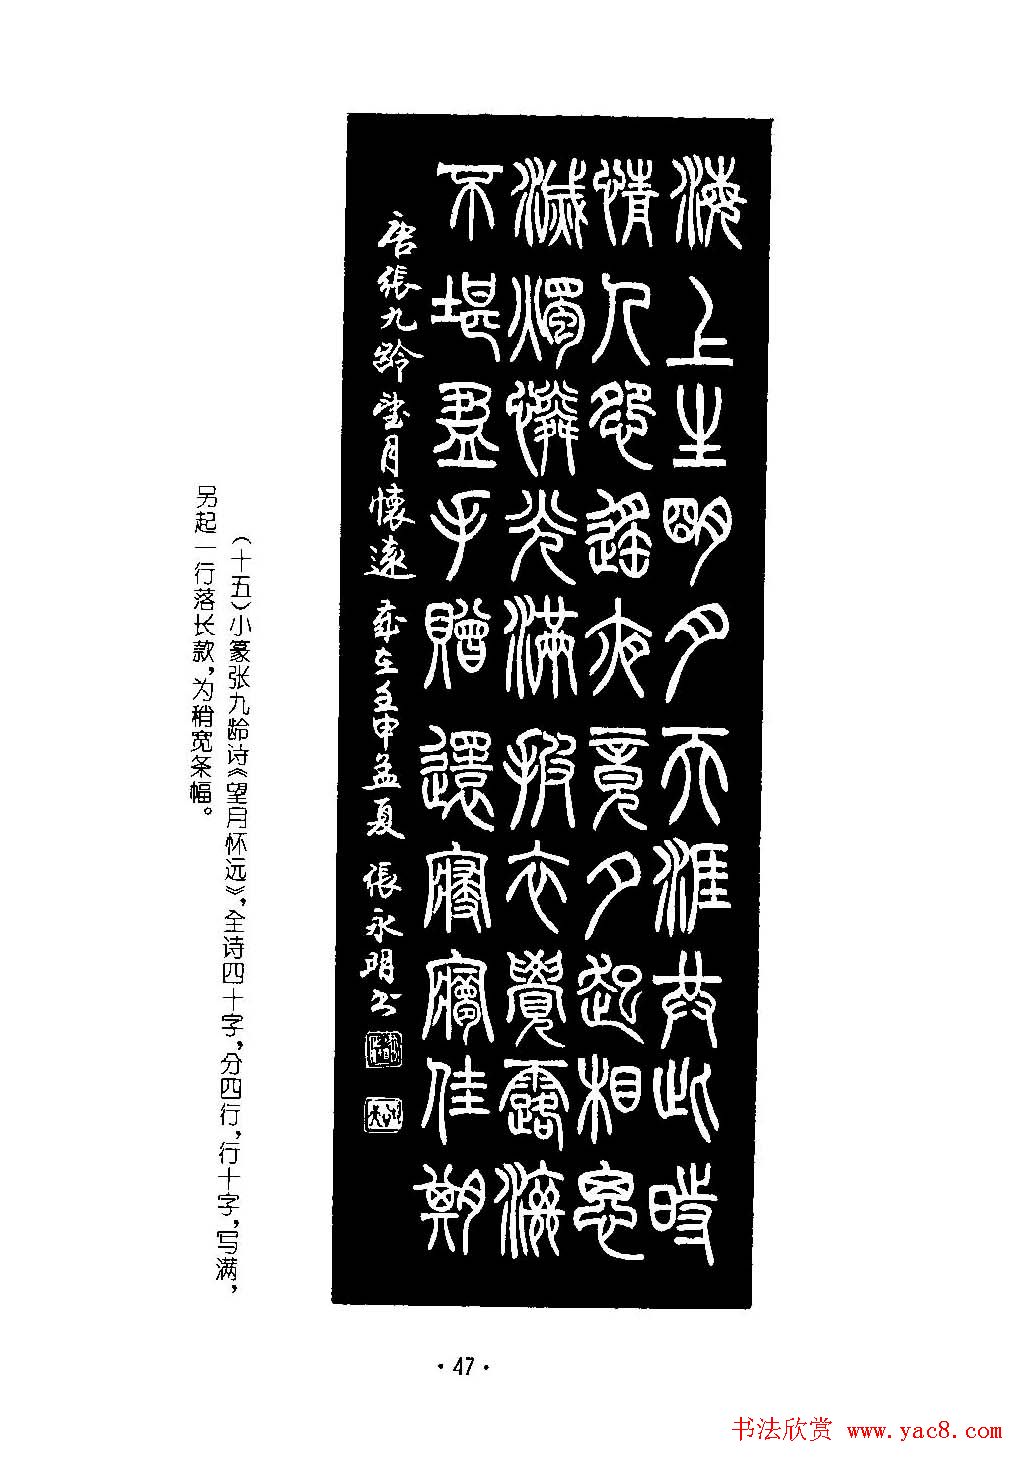 海上生明月天涯共此時
情人怨遙夜竟夕起相思
滅燭憐光滿披衣覺露滋
不堪盈手贈還寢寢佳期
唐張九齡望月懷遠 歲在壬申孟夏 張永明書
(十五)小篆张九龄诗《望月怀远》,全诗四十字,分四行,行十字,写满,
另起一行落长款,为稍宽条幅。
·47·
书法欣赏 www.yac8.com